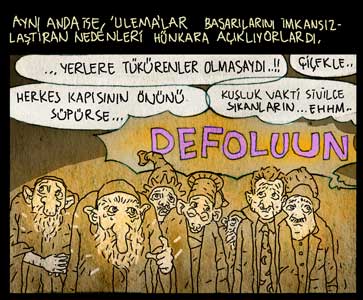 AYNI ANDA İSE, 'ULEMA'LAR BAŞARILARINI İMKANSIZ-
LAŞTIRAN NEDENLERİ HÜNKARA AÇIKLIYORLARDI.
... YERLERE TÜKÜRENLER OLMASAYDI..!!
ÇİÇEKLE..
HERKES KAPISININ ÖNÜNÜ
SÜPÜRSE...
KUŞLUK VAKTİ SİVİLCE
SIKANLARIN...EHHM..
DEFOLUUN